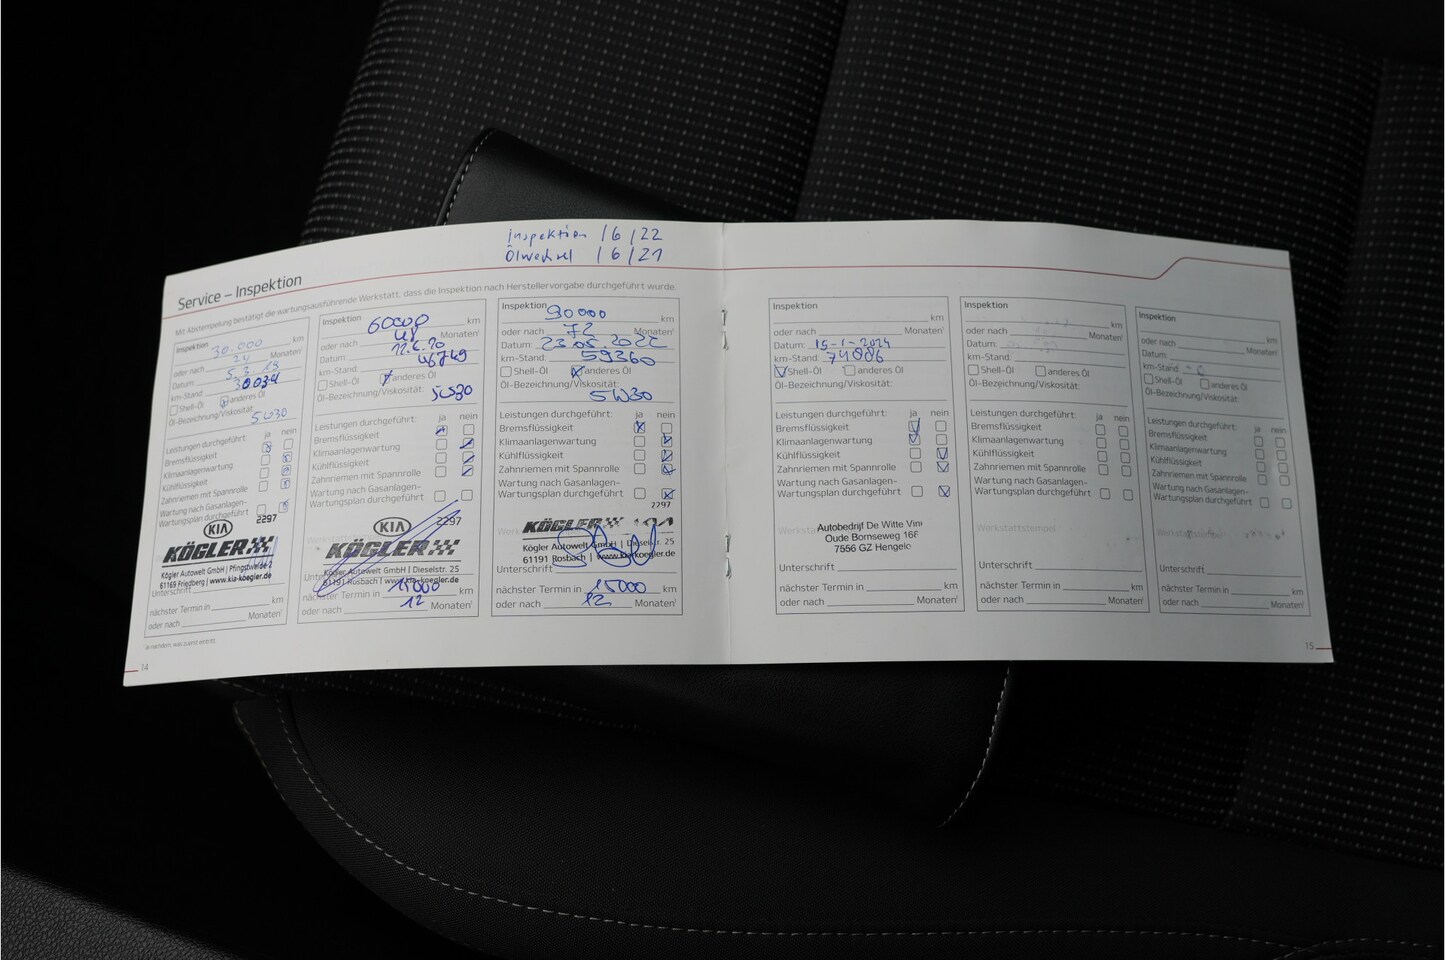 Inspektion 16/22
Ölwechsel 16/21
Service – Inspektion
Mit Abstempelung bestätigt die wartungsausführende Werkstatt, dass die Inspektion nach Herstellervorgabe durchgeführt wurde
Inspektion 30.000 km
oder nach 24 Monaten
Datum: 5.3.18
km-Stand: 30034
Shell-Öl anderes Öl
Öl-Bezeichnung/Viskosität:
5W30
Leistungen durchgeführt: ja nein
Bremsflüssigkeit
Klimaanlagenwartung
Kühlflüssigkeit
Zahnriemen mit Spannrolle
Wartung nach Gasanlagen-
Wartungsplan durchgeführt
2297
KIA
KÖGLER
Kögler Autowelt GmbH | Pfingstweide 2
61169 Friedberg | www.kia-koegler.de
Unterschrift
nächster Termin in km
oder nach Monaten
Inspektion 60000 km
oder nach 48 Monaten
Datum: 12.6.20
km-Stand: 46749
Shell-Öl anderes Öl
Öl-Bezeichnung/Viskosität:
5W30
Leistungen durchgeführt: ja nein
Bremsflüssigkeit
Klimaanlagenwartung
Kühlflüssigkeit
Zahnriemen mit Spannrolle
Wartung nach Gasanlagen-
Wartungsplan durchgeführt
KIA 2297
KÖGLER
Kögler Autowelt GmbH | Dieselstr. 25
61191 Rosbach | www.kia-koegler.de
nächster Termin in 15000 km
oder nach 12 Monaten
Inspektion 90000 km
oder nach 72 Monaten
Datum: 23.05.2022
km-Stand: 59360
Shell-Öl anderes Öl
Öl-Bezeichnung/Viskosität:
5W30
Leistungen durchgeführt: ja nein
Bremsflüssigkeit
Klimaanlagenwartung
Kühlflüssigkeit
Zahnriemen mit Spannrolle
Wartung nach Gasanlagen-
Wartungsplan durchgeführt
2297
KÖGLER KIA
Kögler Autowelt GmbH | Dieselstr. 25
61191 Rosbach | www.kia-koegler.de
Unterschrift
nächster Termin in 15000 km
oder nach 12 Monaten
14
Inspektion
km
oder nach Monaten
Datum: 15-1-2024
km-Stand: 74886
Shell-Öl anderes Öl
Öl-Bezeichnung/Viskosität:
Leistungen durchgeführt: ja nein
Bremsflüssigkeit
Klimaanlagenwartung
Kühlflüssigkeit
Zahnriemen mit Spannrolle
Wartung nach Gasanlagen-
Wartungsplan durchgeführt
Autobedrijf De Witte
Oude Bornseweg
7556 GZ Hengelo
Unterschrift
nächster Termin in km
oder nach Monaten
Inspektion
km
oder nach Monaten
Datum:
km-Stand:
Shell-Öl anderes Öl
Öl-Bezeichnung/Viskosität:
Leistungen durchgeführt: ja nein
Bremsflüssigkeit
Klimaanlagenwartung
Kühlflüssigkeit
Zahnriemen mit Spannrolle
Wartung nach Gasanlagen-
Wartungsplan durchgeführt
Werkstattstempel
Unterschrift
nächster Termin in km
oder nach Monaten
Inspektion
km
oder nach Monaten
Datum:
km-Stand:
Shell-Öl anderes Öl
Öl-Bezeichnung/Viskosität:
Leistungen durchgeführt: ja nein
Bremsflüssigkeit
Klimaanlagenwartung
Kühlflüssigkeit
Zahnriemen mit Spannrolle
Wartung nach Gasanlagen-
Wartungsplan durchgeführt
Unterschrift
nächster Termin in km
oder nach Monaten
15